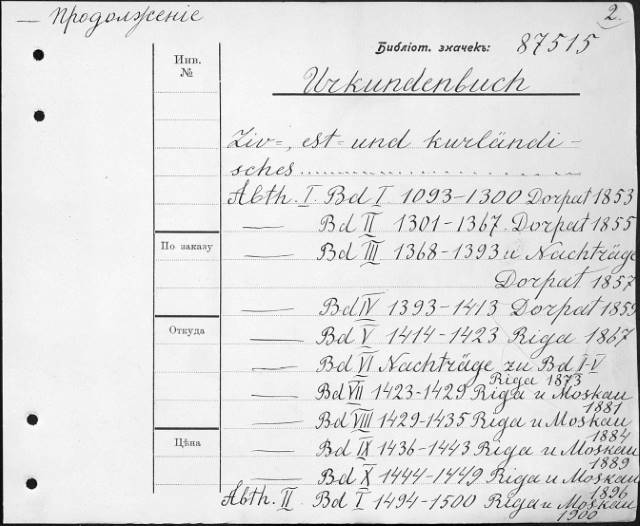 — Продолженіе
2.
Библіот. значекъ: 87515
Инв.
№
Urkundenbuch
Liv-, est- und kurländi-
sches....................
Abth. I. Bd I 1093-1300 Dorpat 1853
— Bd II 1301-1367. Dorpat 1855
По заказу
— Bd III 1368-1393 u Nachträge
Dorpat 1857
— Bd IV 1393-1413 Dorpat 1859
Откуда
— Bd V 1414-1423 Riga 1867
— Bd VI Nachträge zu Bd I-V
Riga 1873
— Bd VII 1423-1429 Riga u Moskau
1881
— Bd VIII 1429-1435 Riga u Moskau
1884
Цѣна
— Bd IX 1436-1443 Riga u Moskau
1889
— Bd X 1444-1449 Riga u Moskau
1896
Abth. II. Bd I 1494-1500 Riga u Moskau
1900